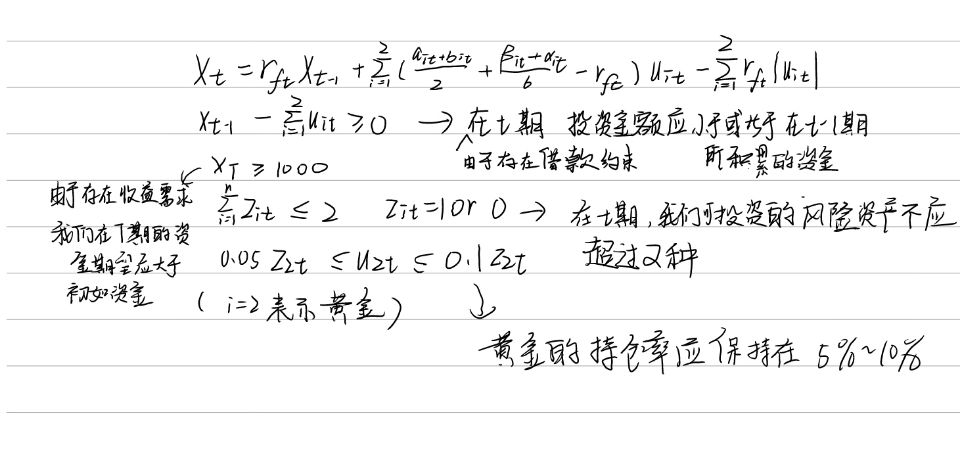 X_t = r_{ft} X_{t-1} + \sum_{i=1}^{2} ( \frac{a_{it}+b_{it}}{2} + \frac{\beta_{it}+\alpha_{it}}{6} - r_{ft} ) u_{it} - \sum_{i=1}^{2} r_{ft} |u_{it}|
X_{t-1} - \sum_{i=1}^{2} u_{it} ≥ 0 → 在t期 投资金额应小于或大于在t-1期
由于存在借款约束 所积累的资金
X_T ≥ 1000
由于存在收益需求
我们在T期的资
金期望应大于
初始资金
\sum_{i=1}^{n} Z_{it} ≤ 2 Z_{it}=1 or 0 → 在t期,我们所投资的风险资产不应
超过2种
0.05 Z_{2t} ≤ u_{2t} ≤ 0.1 Z_{2t}
( i=2 表示黄金 ) ↓
黄金的持仓率应保持在 5%~10%